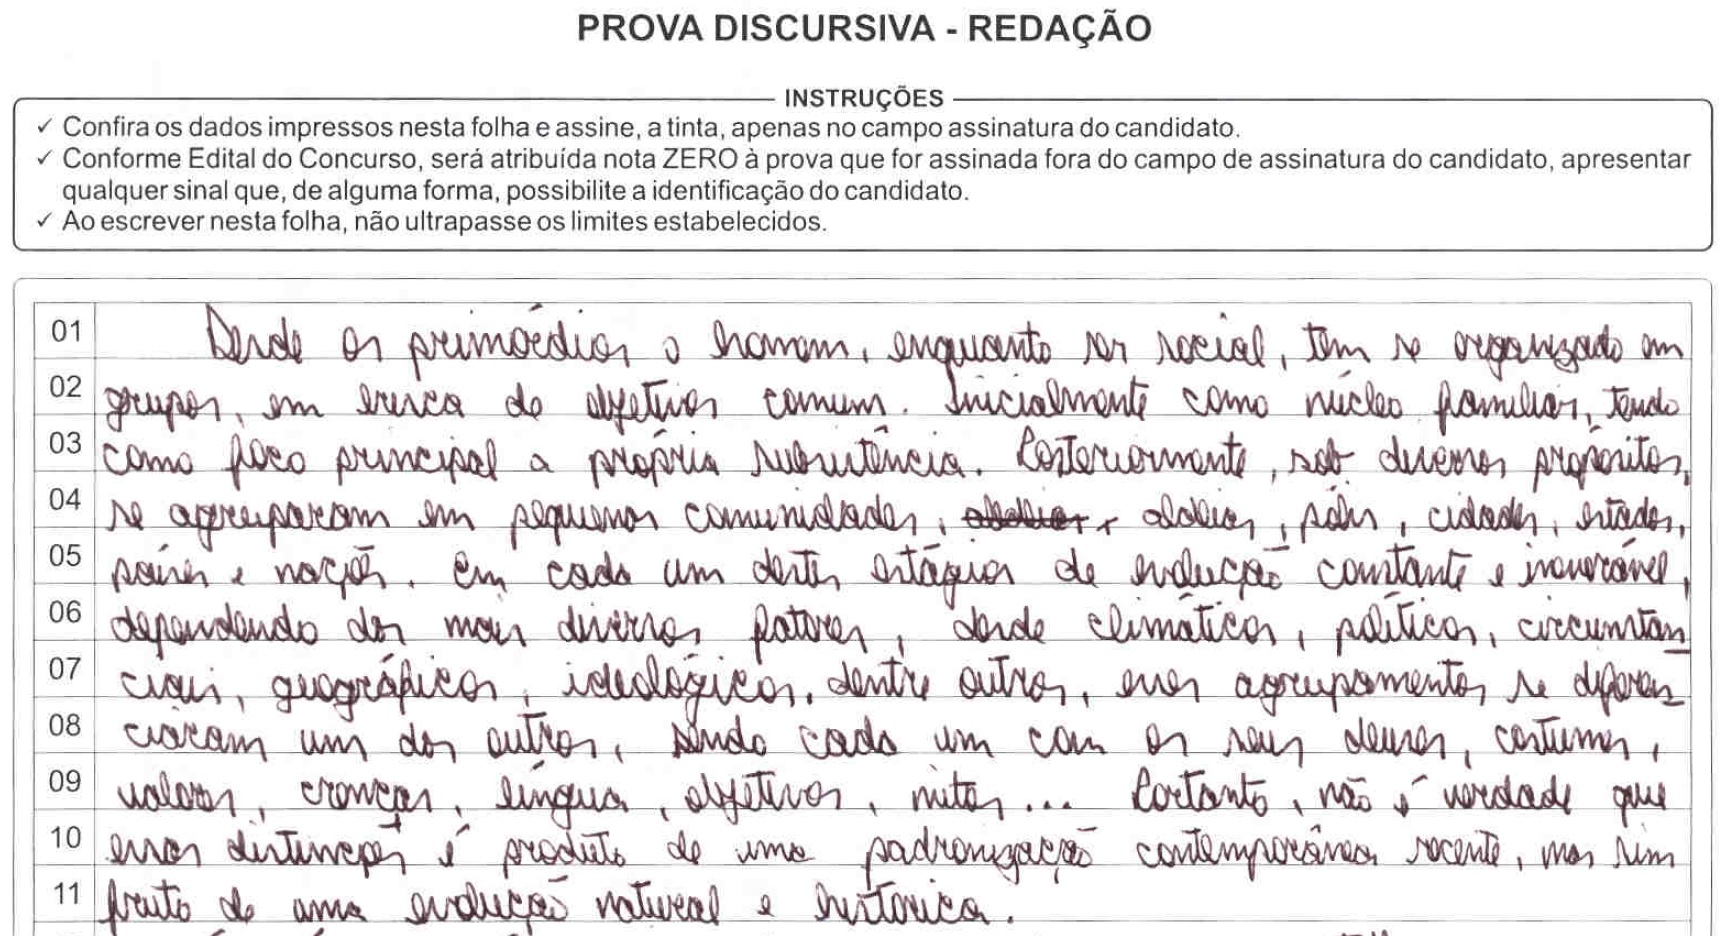 PROVA DISCURSIVA - REDAÇÃO
INSTRUÇÕES
✓ Confira os dados impressos nesta folha e assine, a tinta, apenas no campo assinatura do candidato.
✓ Conforme Edital do Concurso, será atribuída nota ZERO à prova que for assinada fora do campo de assinatura do candidato, apresentar
qualquer sinal que, de alguma forma, possibilite a identificação do candidato.
✓ Ao escrever nesta folha, não ultrapasse os limites estabelecidos.
01 Desde os primórdios o homem, enquanto ser social, tem se organizado em
02 grupos, em busca de objetivos comuns. Inicialmente como núcleo familiar, tendo
03 como foco principal a própria subsistência. Posteriormente, sob diversos propósitos,
04 se agruparam em pequenas comunidades, aldeias, pólis, cidades, estados,
05 países e nações. Em cada um destes estágios de evolução constante e inexorável,
06 dependendo dos mais diversos fatores, desde climáticos, políticos, circunstan
07 ciais, geográficos, ideológicos, dentre outros, esses agrupamentos se diferen
08 ciaram um dos outros, sendo cada um com os seus deuses, costumes,
09 valores, crenças, língua, objetivos, mitos... Portanto, não é verdade que
10 essas distinções é produto de uma padronização contemporânea recente, mas sim
11 fruto de uma evolução natural e histórica.